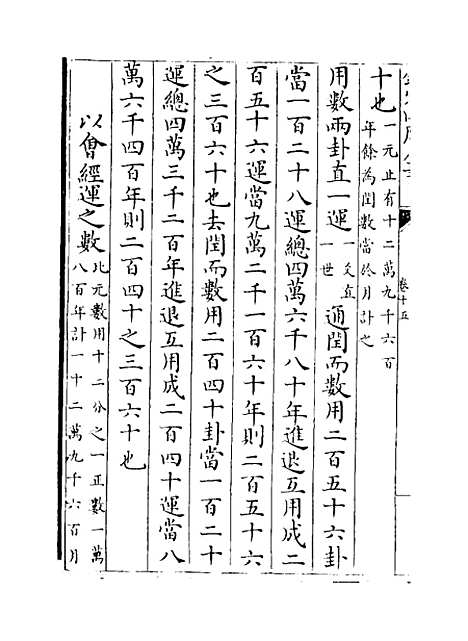 十也一元止有十二萬九千六百
年餘為閏數當於月計之
用數兩卦直一運一爻直
一世
通閏而數用二百五十六卦
當一百二十八運總四萬六千八十年進退互用成二
百五十六運當九萬二千一百六十年則二百五十六
之三百六十也去閏而數用二百四十卦當一百二十
運總四萬三千二百年進退互用成二百四十運當八
萬六千四百年則二百四十之三百六十也
以會經運之數此元數用十二分之一正數一萬
八百年計一十二萬九千六百月
卷十五